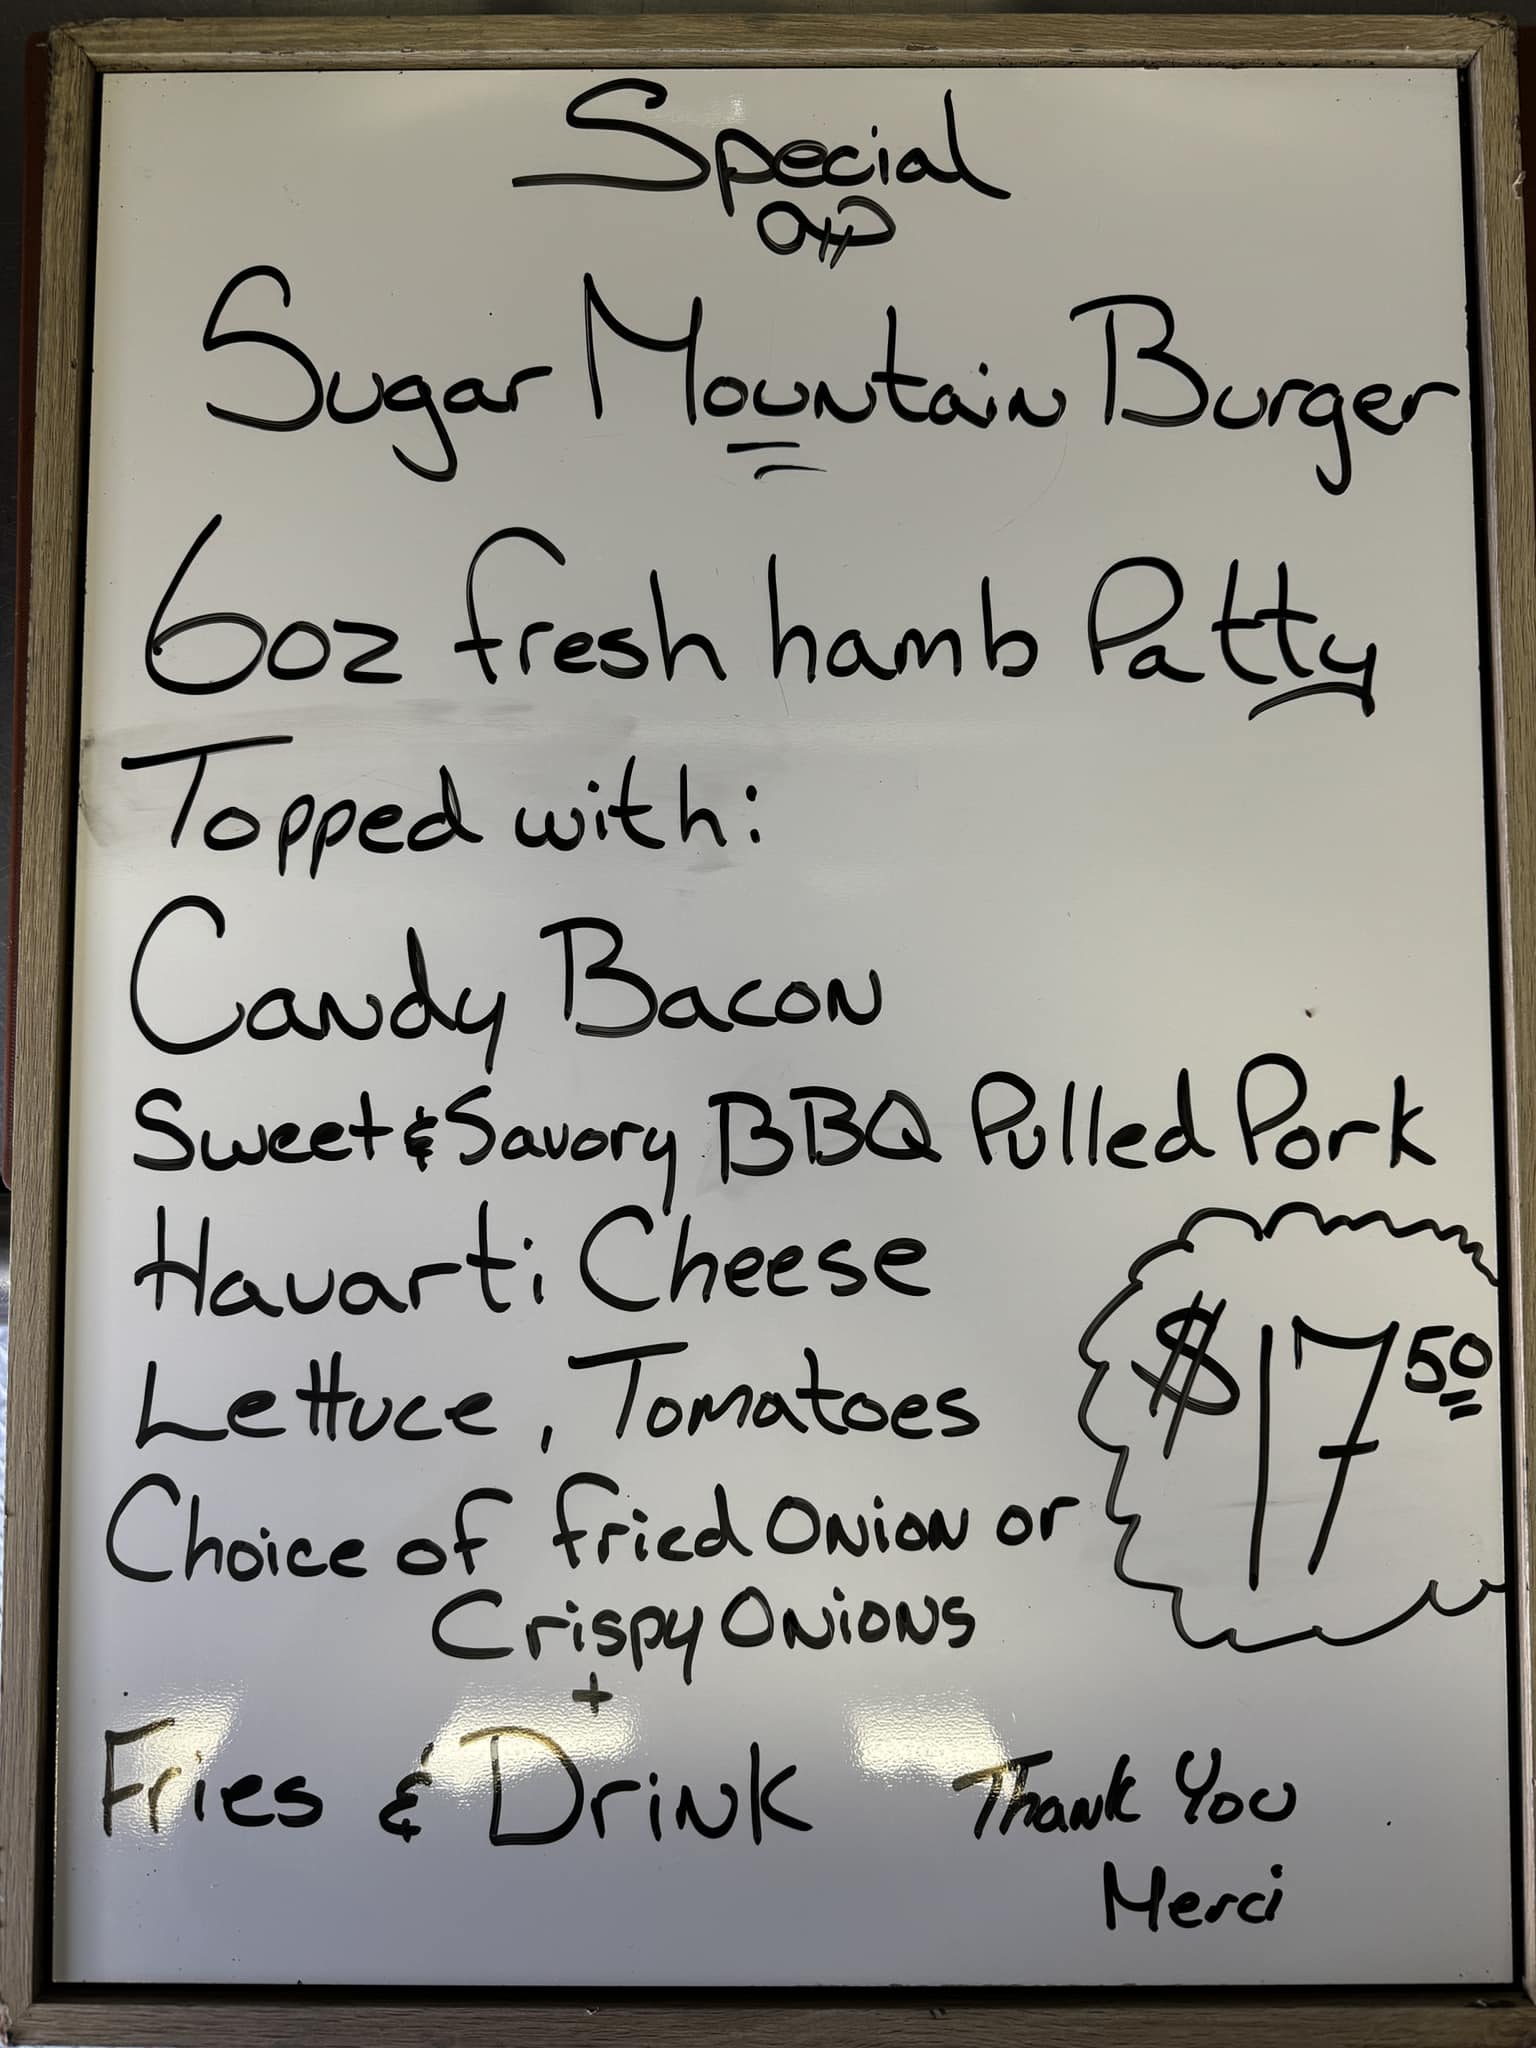 Special
Sugar Mountain Burger
6oz fresh hamb Patty
Topped with:
Candy Bacon
Sweet & Savory BBQ Pulled Pork
Havarti Cheese
Lettuce, Tomatoes
$17.50
Choice of fried Onion or
Crispy Onions
+
Fries & Drink
Thank You
Merci